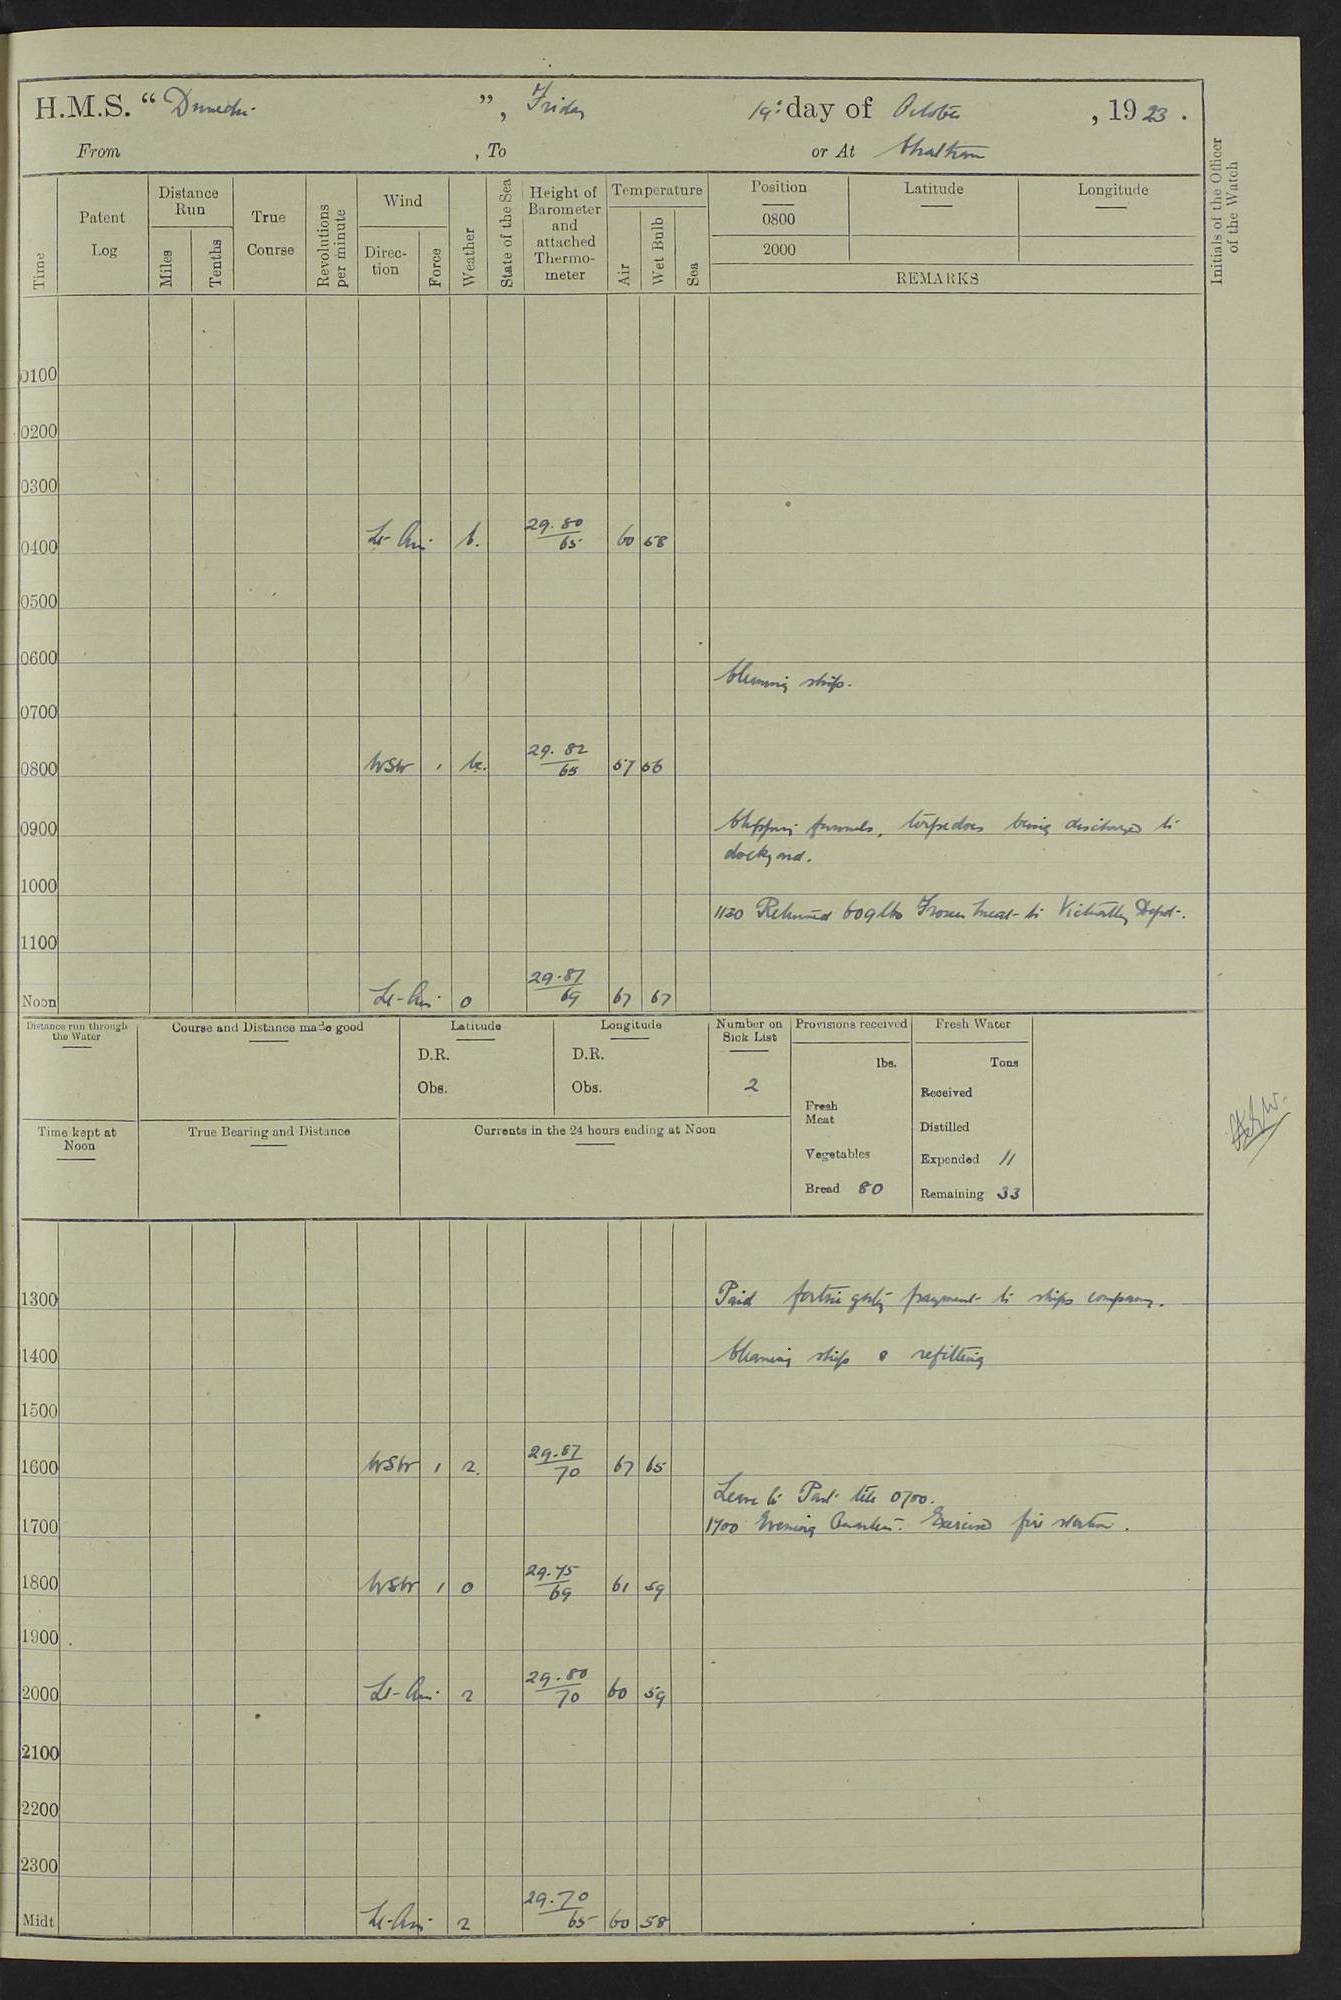 H.M.S. “ Dunedin ”, Friday 19th day of October , 1923 .
From , To or At Chatham
Time
Patent Log
Distance Run
Miles
Tenths
True Course
Revolutions per minute
Wind
Direction
Force
Weather
State of the Sea
Height of Barometer and attached Thermometer
Temperature
Air
Wet Bulb
Sea
Position Latitude Longitude
0800
2000
REMARKS
Initials of the Officer of the Watch
0100
0200
0300
0400 Lt- Airs b. 29.80 65 60 58
0500
0600
Cleaning ship.
0700
0800 WSW 1 bc. 29.82 65 57 56
0900 Chipping funnels, torpedoes being discharged to
dockyard.
1000
1130 Returned 609 lbs Frozen Meat to Victualling Depot.
1100
Noon Lt- Airs o 29.87 69 67 67
Distance run through the Water
Course and Distance made good
Latitude
D.R.
Obs.
Longitude
D.R.
Obs.
Number on Sick List
2
Provisions received
lbs.
Fresh Meat
Vegetables
Bread 80
Fresh Water
Tons
Received
Distilled
Expended 11
Remaining 33
Time kept at Noon
True Bearing and Distance
Currents in the 24 hours ending at Noon
1300 Paid fortnightly payment to ships company.
1400 Cleaning ship & refitting
1500
1600 WSW 1 2. 29.87 70 67 65
Leave to Part till 0700.
1700 1700 Evening Quarters. Exercised fire stations.
1800 WSW 1 o 29.75 69 61 59
1900
2000 Lt- Airs 2 29.80 70 60 59
2100
2200
2300
Midt Lt- Airs 2 29.70 65 60 58